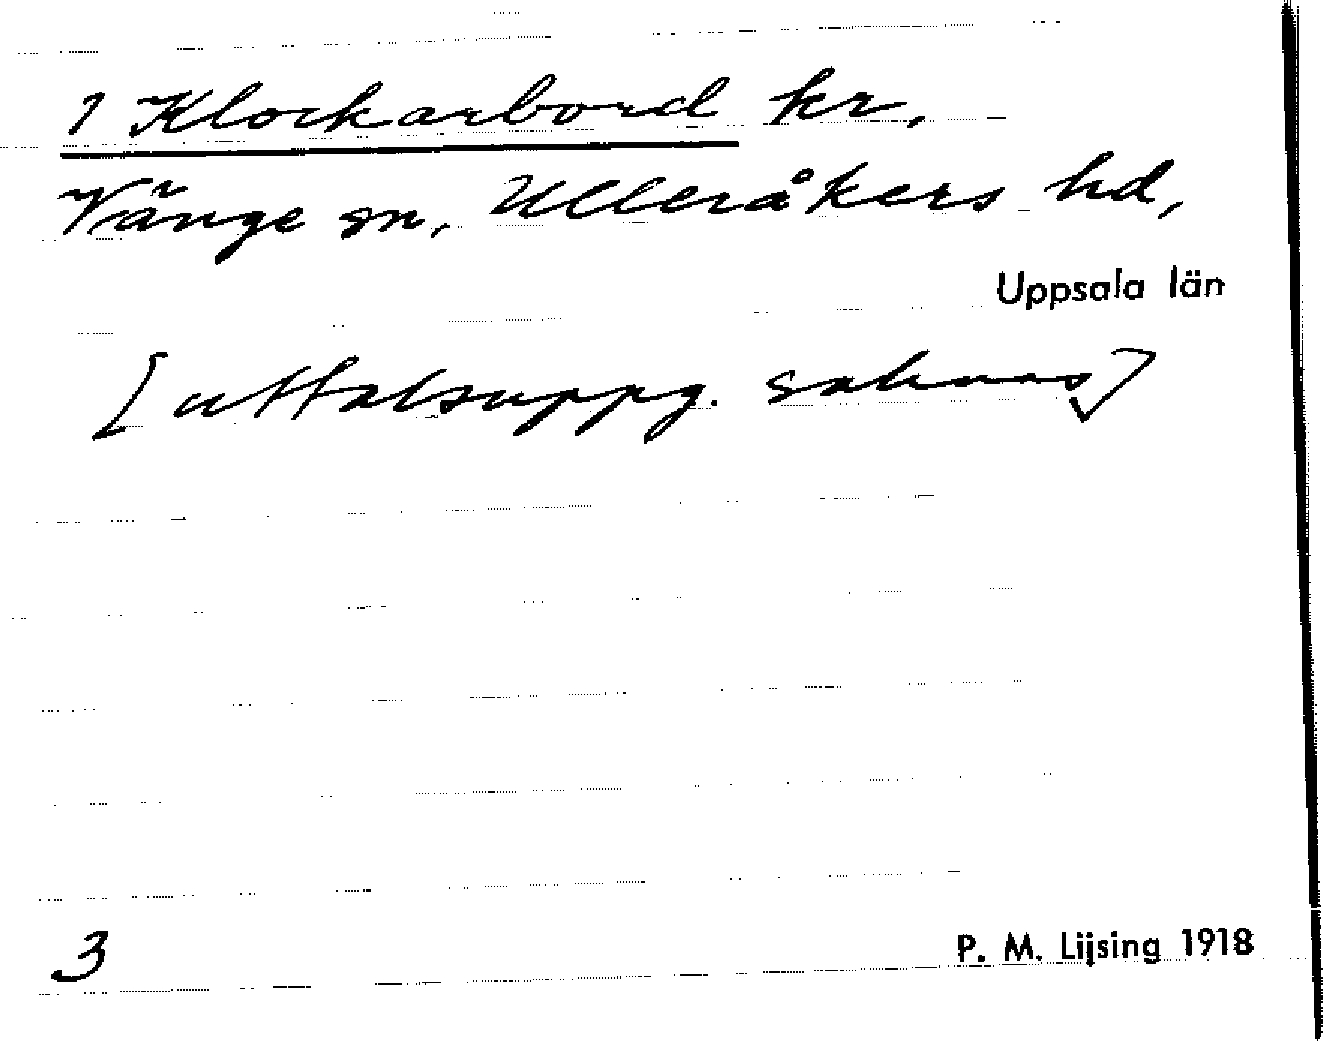 1 Klockarbord kr,
Vänge sn, Ulleråkers hd,
Uppsala län
[uttalsuppg. saknas]
3
P. M. Lijsing 1918